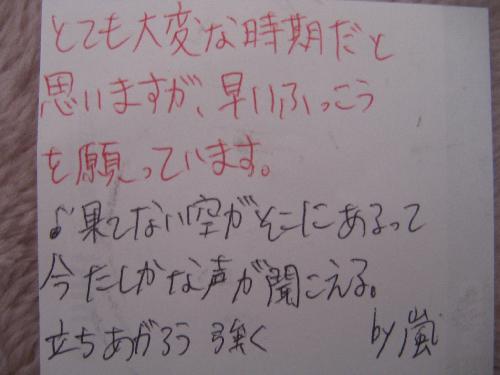 とても大変な時期だと
思いますが、早いふっこう
を願っています。
♪果てない空がそこにあるって
今たしかな声が聞こえる。
立ちあがろう 強く by嵐